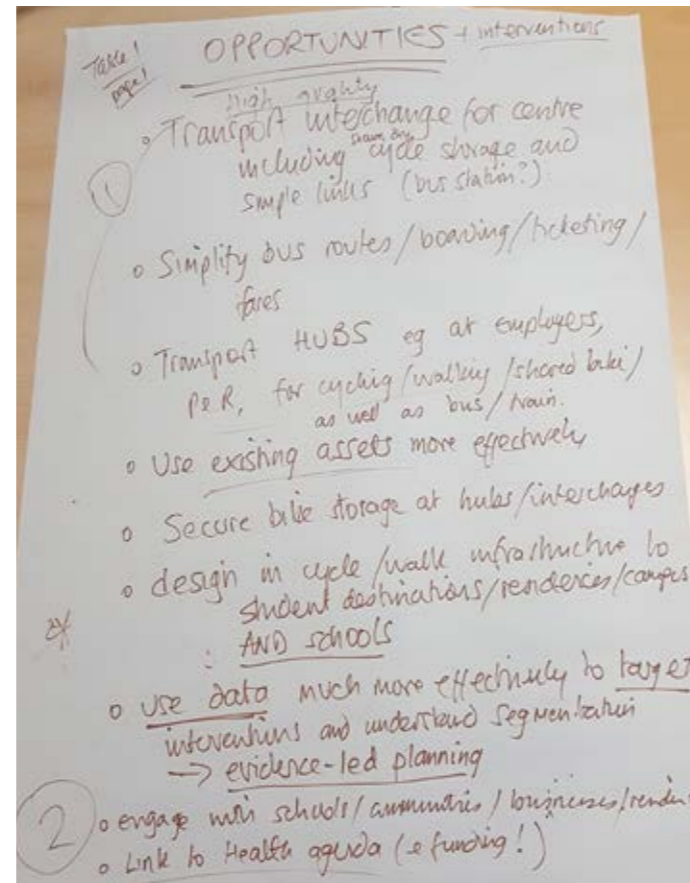 Table 1
page 1
OPPORTUNITIES + interventions
High quality
o Transport interchange for centre
including secure cycle storage and
simple links (bus station?)
1
o Simplify bus routes/boarding/ticketing/
fares
o Transport HUBS eg at employers,
P&R, for cycling/walking/shared bike/
as well as bus/train.
o Use existing assets more effectively
o Secure bike storage at hubs/interchanges
o design in cycle/walk infrastructure to
student destinations/residencies/campus
AND schools
o use data much more effectively to target
interventions and understand segmentation
→ evidence-led planning
2
o engage with schools/communities/businesses/
o Link to Health agenda (& funding!)